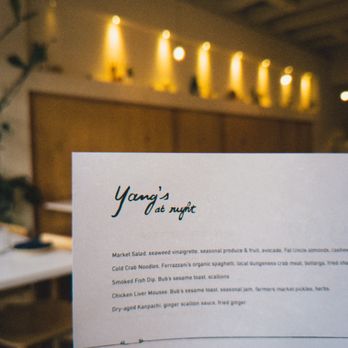 Yang's
at night
Market Salad. seaweed vinaigrette, seasonal produce & fruit, avocado, Fat Uncle almonds, cashew
Cold Crab Noodles. Ferrazzani's organic spaghetti, local dungeness crab meat, bottarga, fried shal
Smoked Fish Dip. Bub's sesame toast, scallions
Chicken Liver Mousse. Bub's sesame toast, seasonal jam, farmers market pickles, herbs.
Dry-aged Kanpachi. ginger scallion sauce, fried ginger.